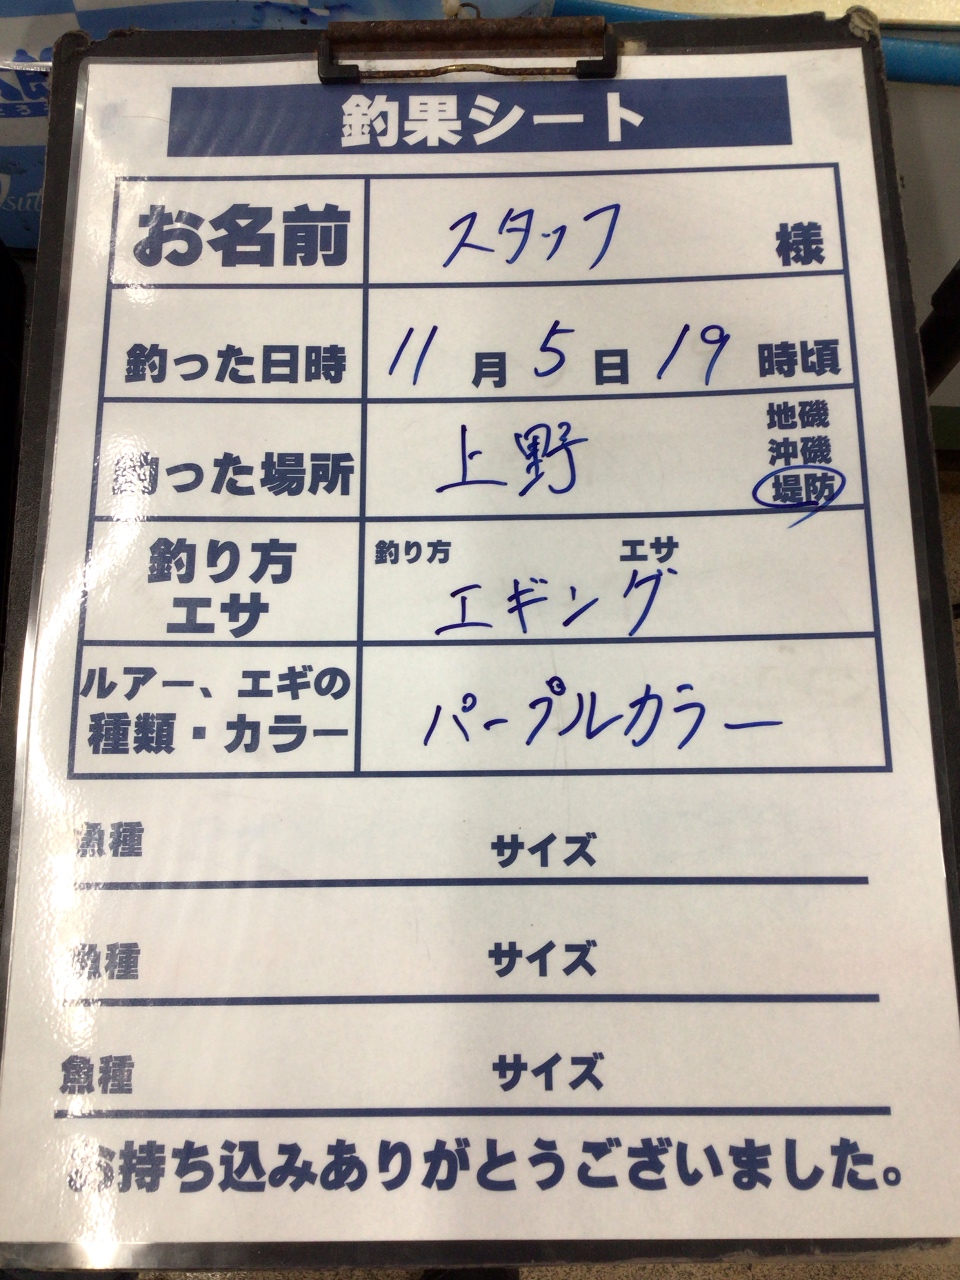 釣果シート
お名前 スタッフ 様
釣った日時 11月5日19時頃
釣った場所 上野 地磯
沖磯
堤防
釣り方
エサ
釣り方 エサ
エギング
ルアー、エギの
種類・カラー
パープルカラー
魚種 サイズ
魚種 サイズ
魚種 サイズ
お持ち込みありがとうございました。